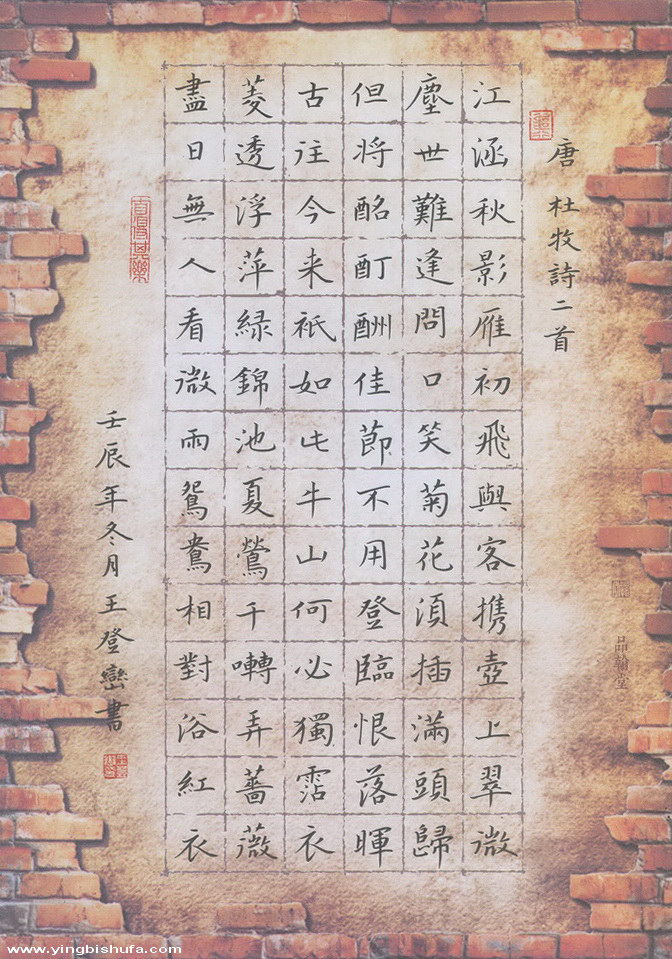 唐杜牧詩二首
江涵秋影雁初飛與客携壺上翠微
塵世難逢問口笑菊花湏插滿頭歸
但将酩酊酬佳節不用登臨恨落暉
古往今来祇如此牛山何必獨霑衣
菱透浮萍緑錦池夏鶯千囀弄薔薇
盡日無人看微雨鴛鴦相對浴紅衣
壬辰年冬月王登巒書
品翰堂
www.yingbishufa.com